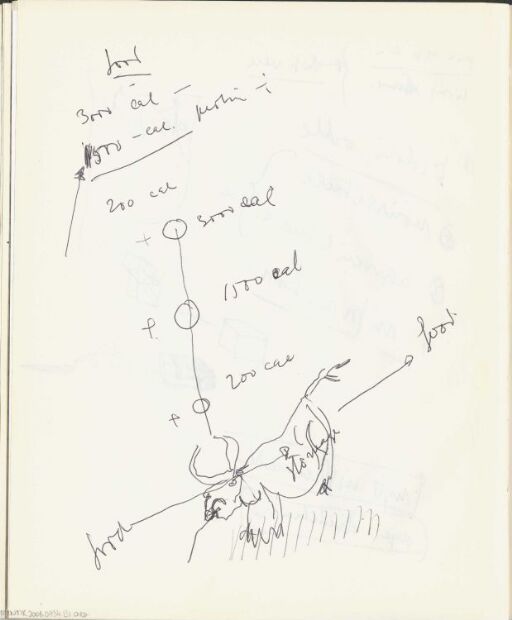 food
3000 cal -
1500 - cal. protein ÷
200 cal
+ 3000 cal
1500 cal
200 cal
+
food
storage
food